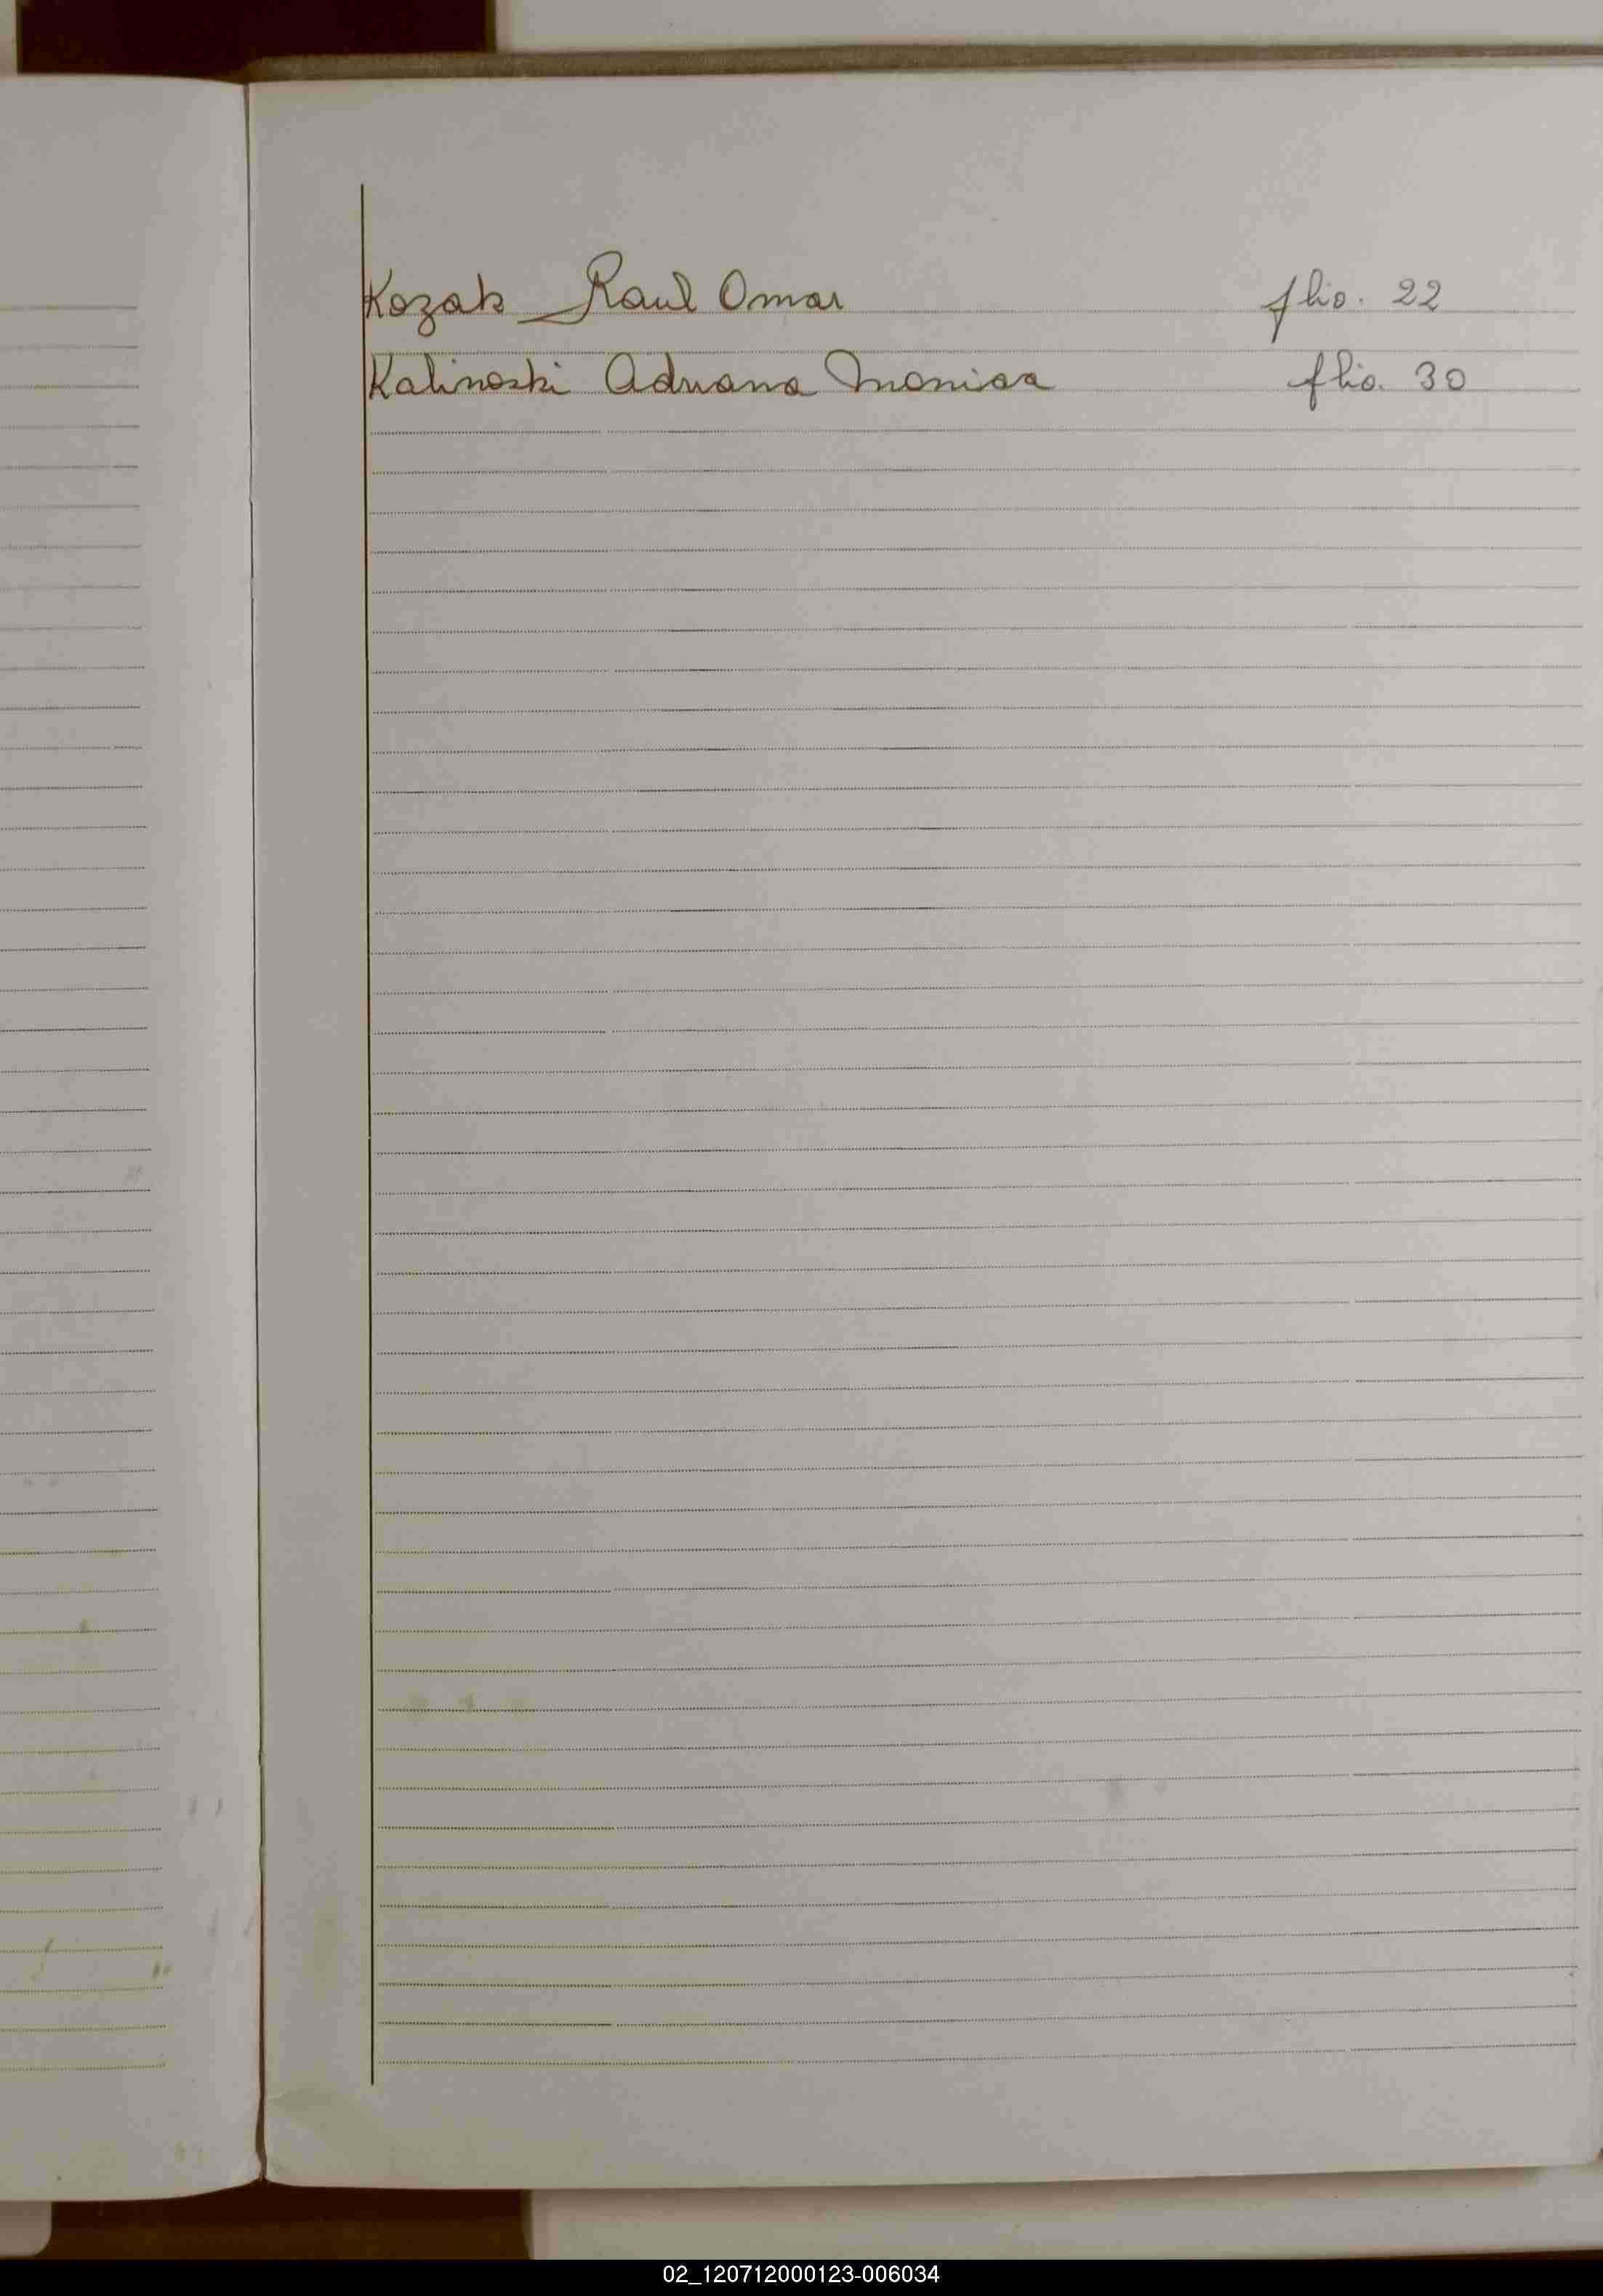 Kozak Raul Omar flio. 22
Kalinoski Adriana Monica flio. 30
02_120712000123-006034